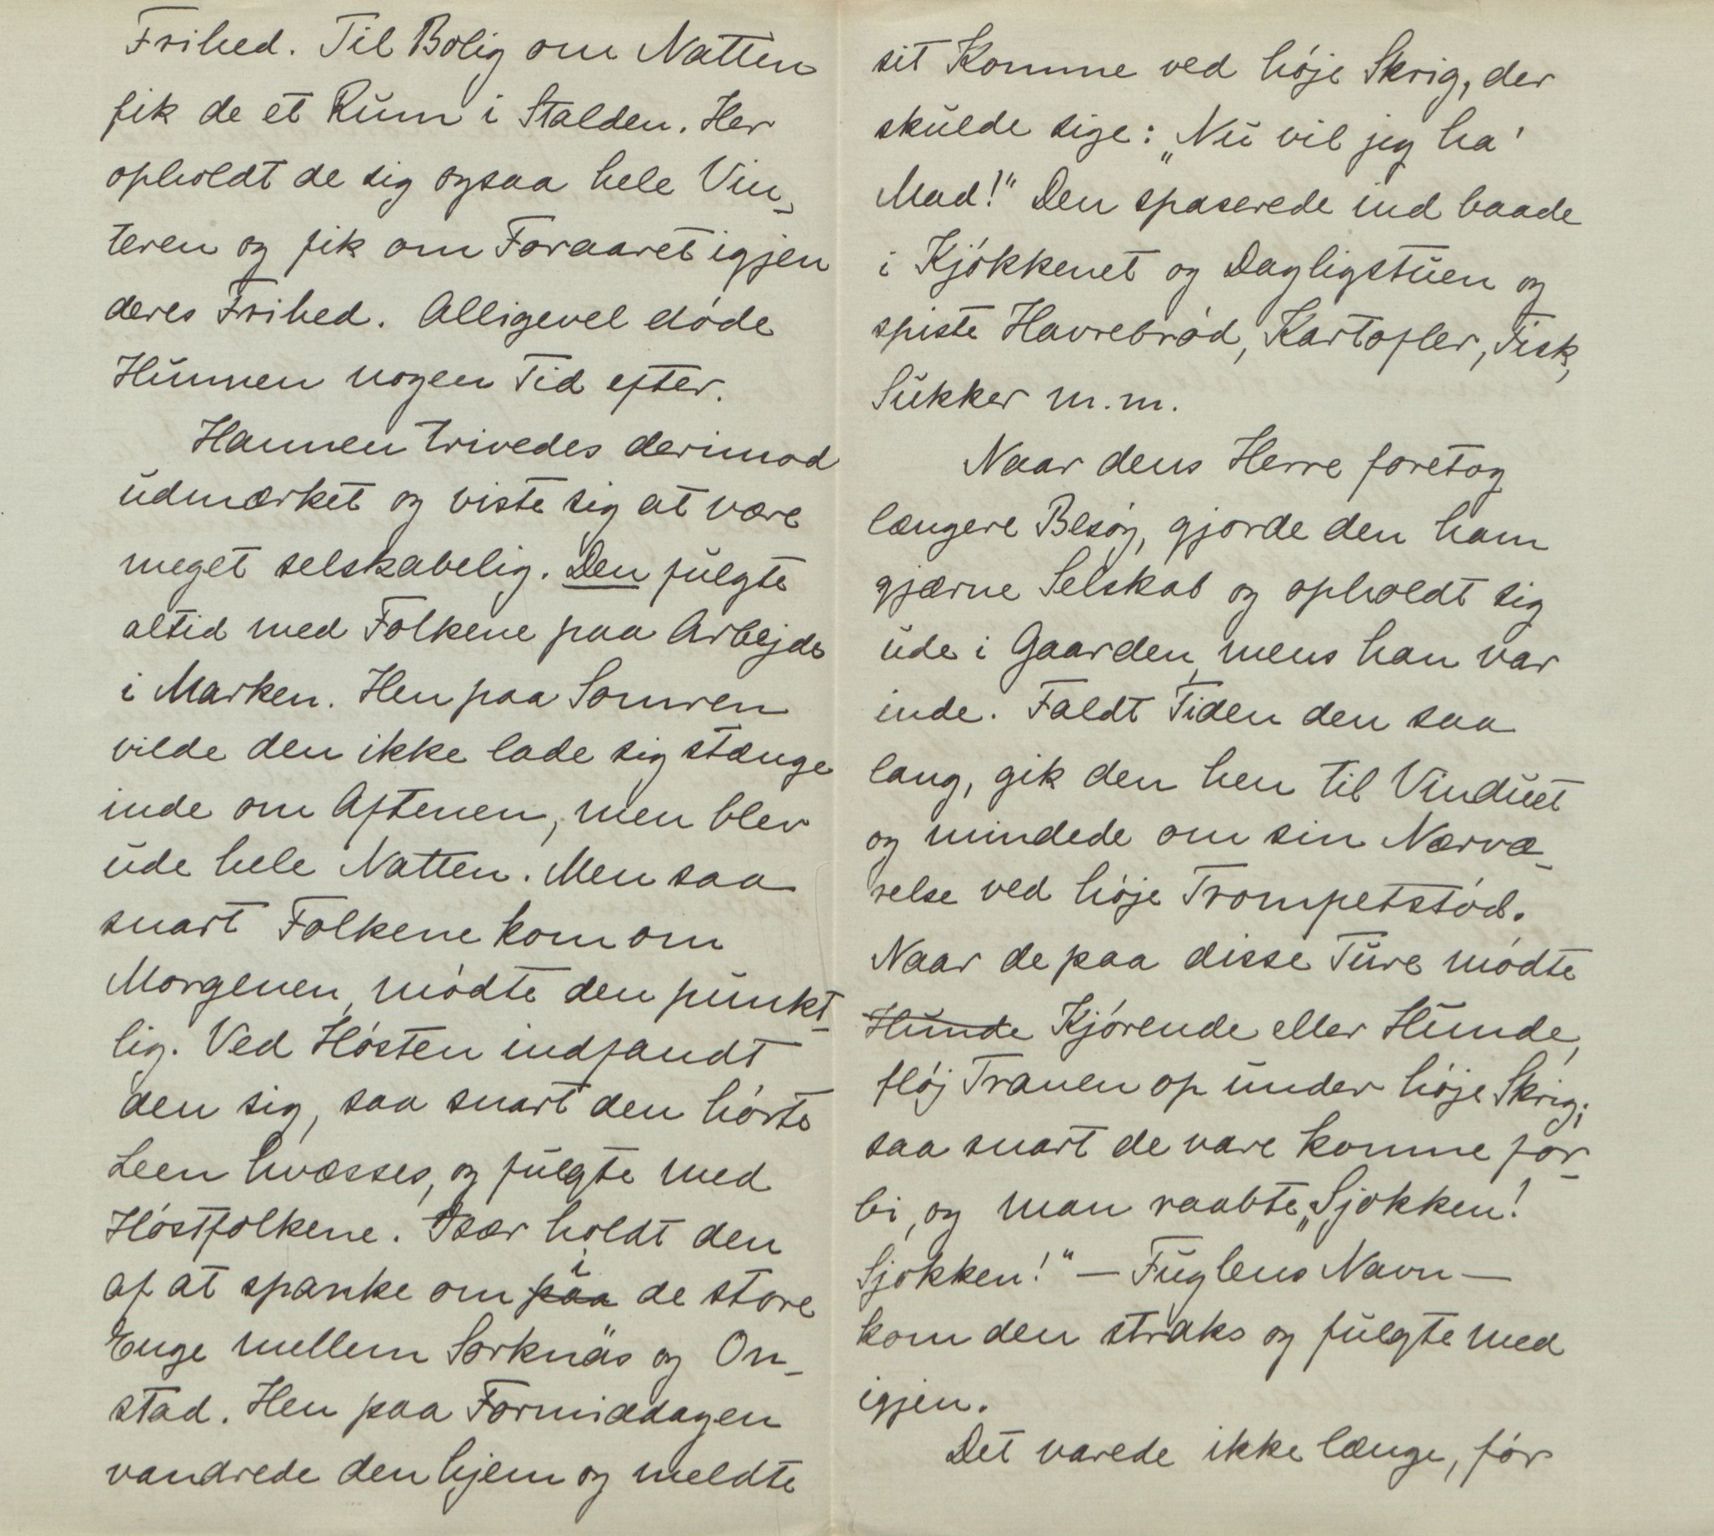 Frihed. Til Bolig om Natten
fik de et Rum i Stalden. Her
opholdt de sig ogsaa hele Vin-
teren og fik om Foraaret igjen
deres Frihed. Alligevel døde
Hunnen nogen Tid efter.
Hannen trivedes derimod
udmærket og viste sig at være
meget selskabelig. Den fulgte
altid med Folkene paa Arbejde
i Marken. Hen paa Somren
vilde den ikke lade sig stænge
inde om Aftenen, men blev
ude hele Natten. Men saa
snart Folkene kom om
Morgenen, mødte den punkt-
lig. Ved Høsten indfandt
den sig, saa snart den hørte
Leen hvæsses, og fulgte med
Høstfolkene. Især holdt den
af at spanke om paa i de store
Enge mellem Sorknäs og On-
stad. Hen paa Formiddagen
vandrede den hjem og meldte
sit Komme ved høje Skrig, der
skulde sige: „Nu vil jeg ha'
Mad!" Den spaserede ind baade
i Kjøkkenet og Dagligstuen og
spiste Havrebrød, Kartofler, Fisk,
Sukker m.m.
Naar dens Herre foretog
længere Besøg, gjorde den ham
gjærne Selskab og opholdt sig
ude i Gaarden, mens han var
inde. Faldt Tiden den saa
lang, gik den hen til Vinduet
og mindede om sin Nærvæ-
relse ved høje Trompetstød.
Naar de paa disse Ture mødte
Hunde Kjørende eller Hunde,
fløj Tranen op under høje Skrig;
saa snart de vare komne for-
bi, og man raabte „Sjokken!
Sjokken!" — Fuglens Navn —
kom den straks og fulgte med
igjen.
Det varede ikke længe, før